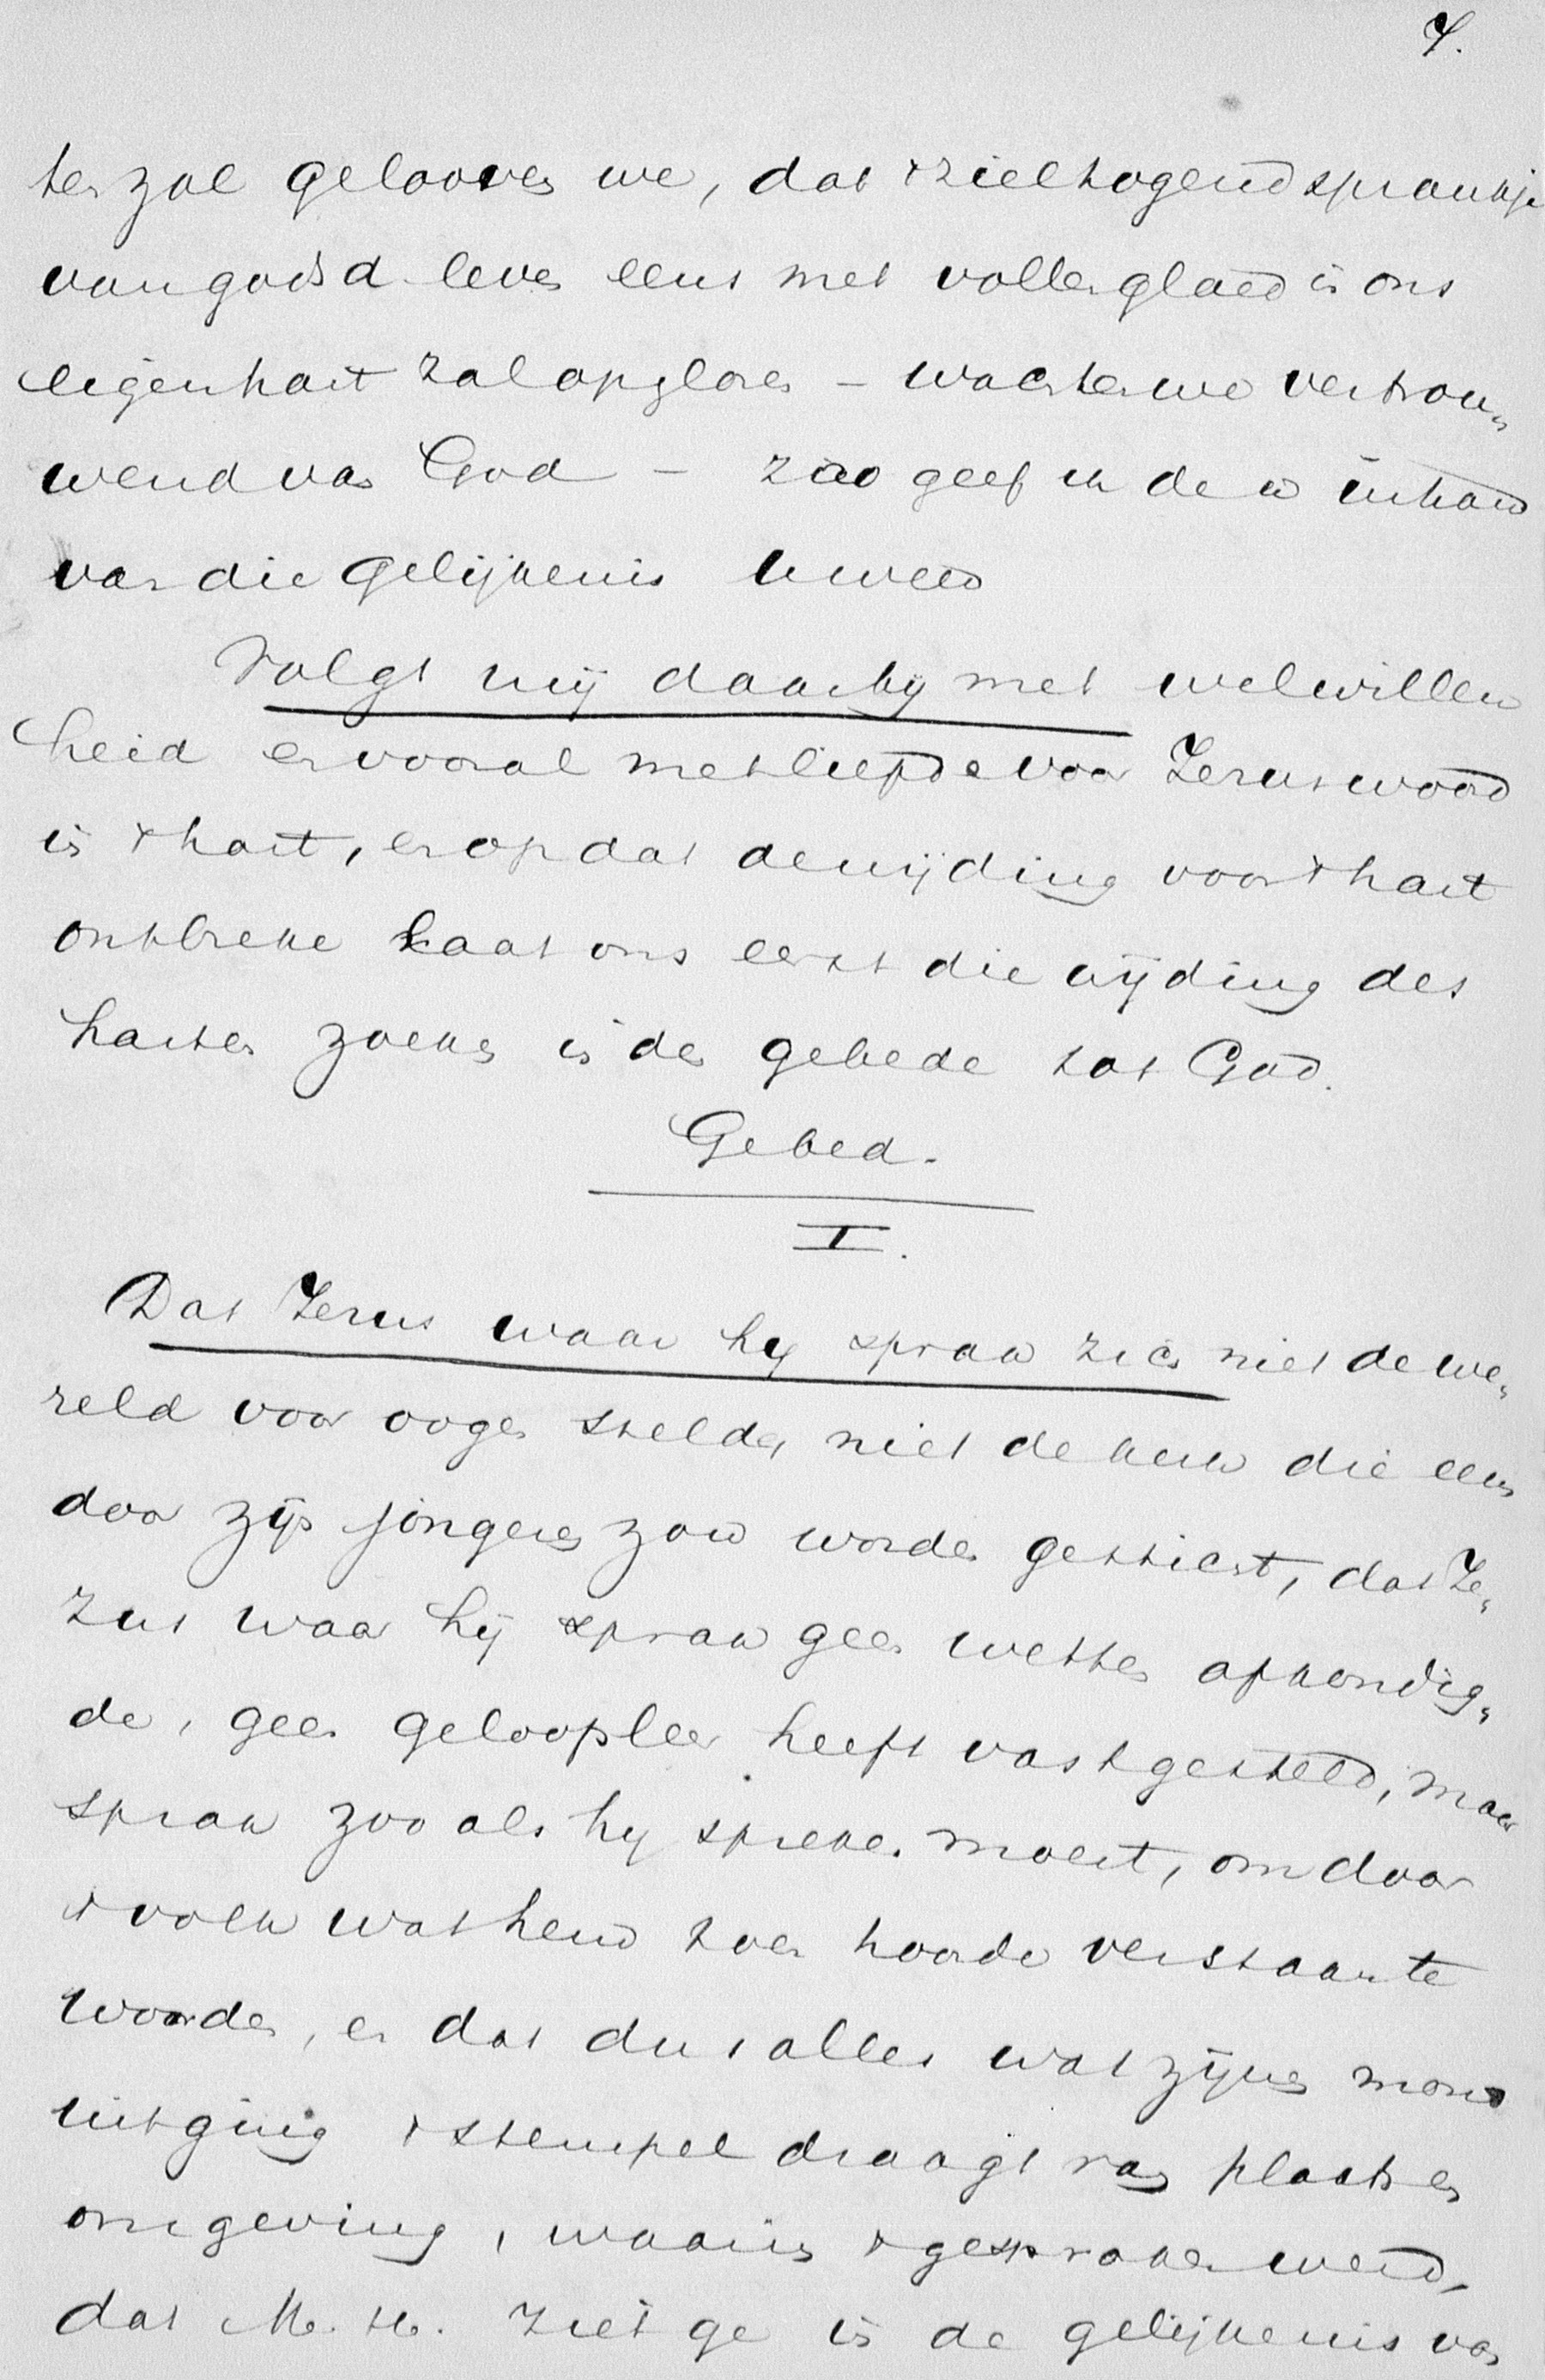 7.
ten zal gelooven we, dat 't zieltogend sprankje
van godsd. leven eens met vollen gloed in ons
eigen hart zal opgloren – wachten we vertrou„
wend van God – zoo geef ik de inhoud
van die gelijkenis weer
Volgt mij daarbij met welwillend
heid en vooral met liefde voor Jezus woord
in 't hart, en opdat de wijding voor 't hart
ontbreke laat ons eerst die wijding des
harten zoeken in den gebede tot God.
Gebed.
I.
Dat Jezus waar hij sprak zich niet de we„
reld voor oogen stelde, niet de kerk die eens
door zijn jongeren zou worden gesticht, dat Je„
zus waar hij sprak geen wetten afkondig„
de, geen geloofsleer heeft vastgesteld, maar
sprak zooals hij spreken moest, om door
't volk wat hem toen hoorde verstaan te
worden, en dat dus alles wat zijnen mond
uitging 't stempel draagt van plaats en
omgeving, waarin 't gesproken werd,
dat M. H. ziet ge in de gelijkenis van